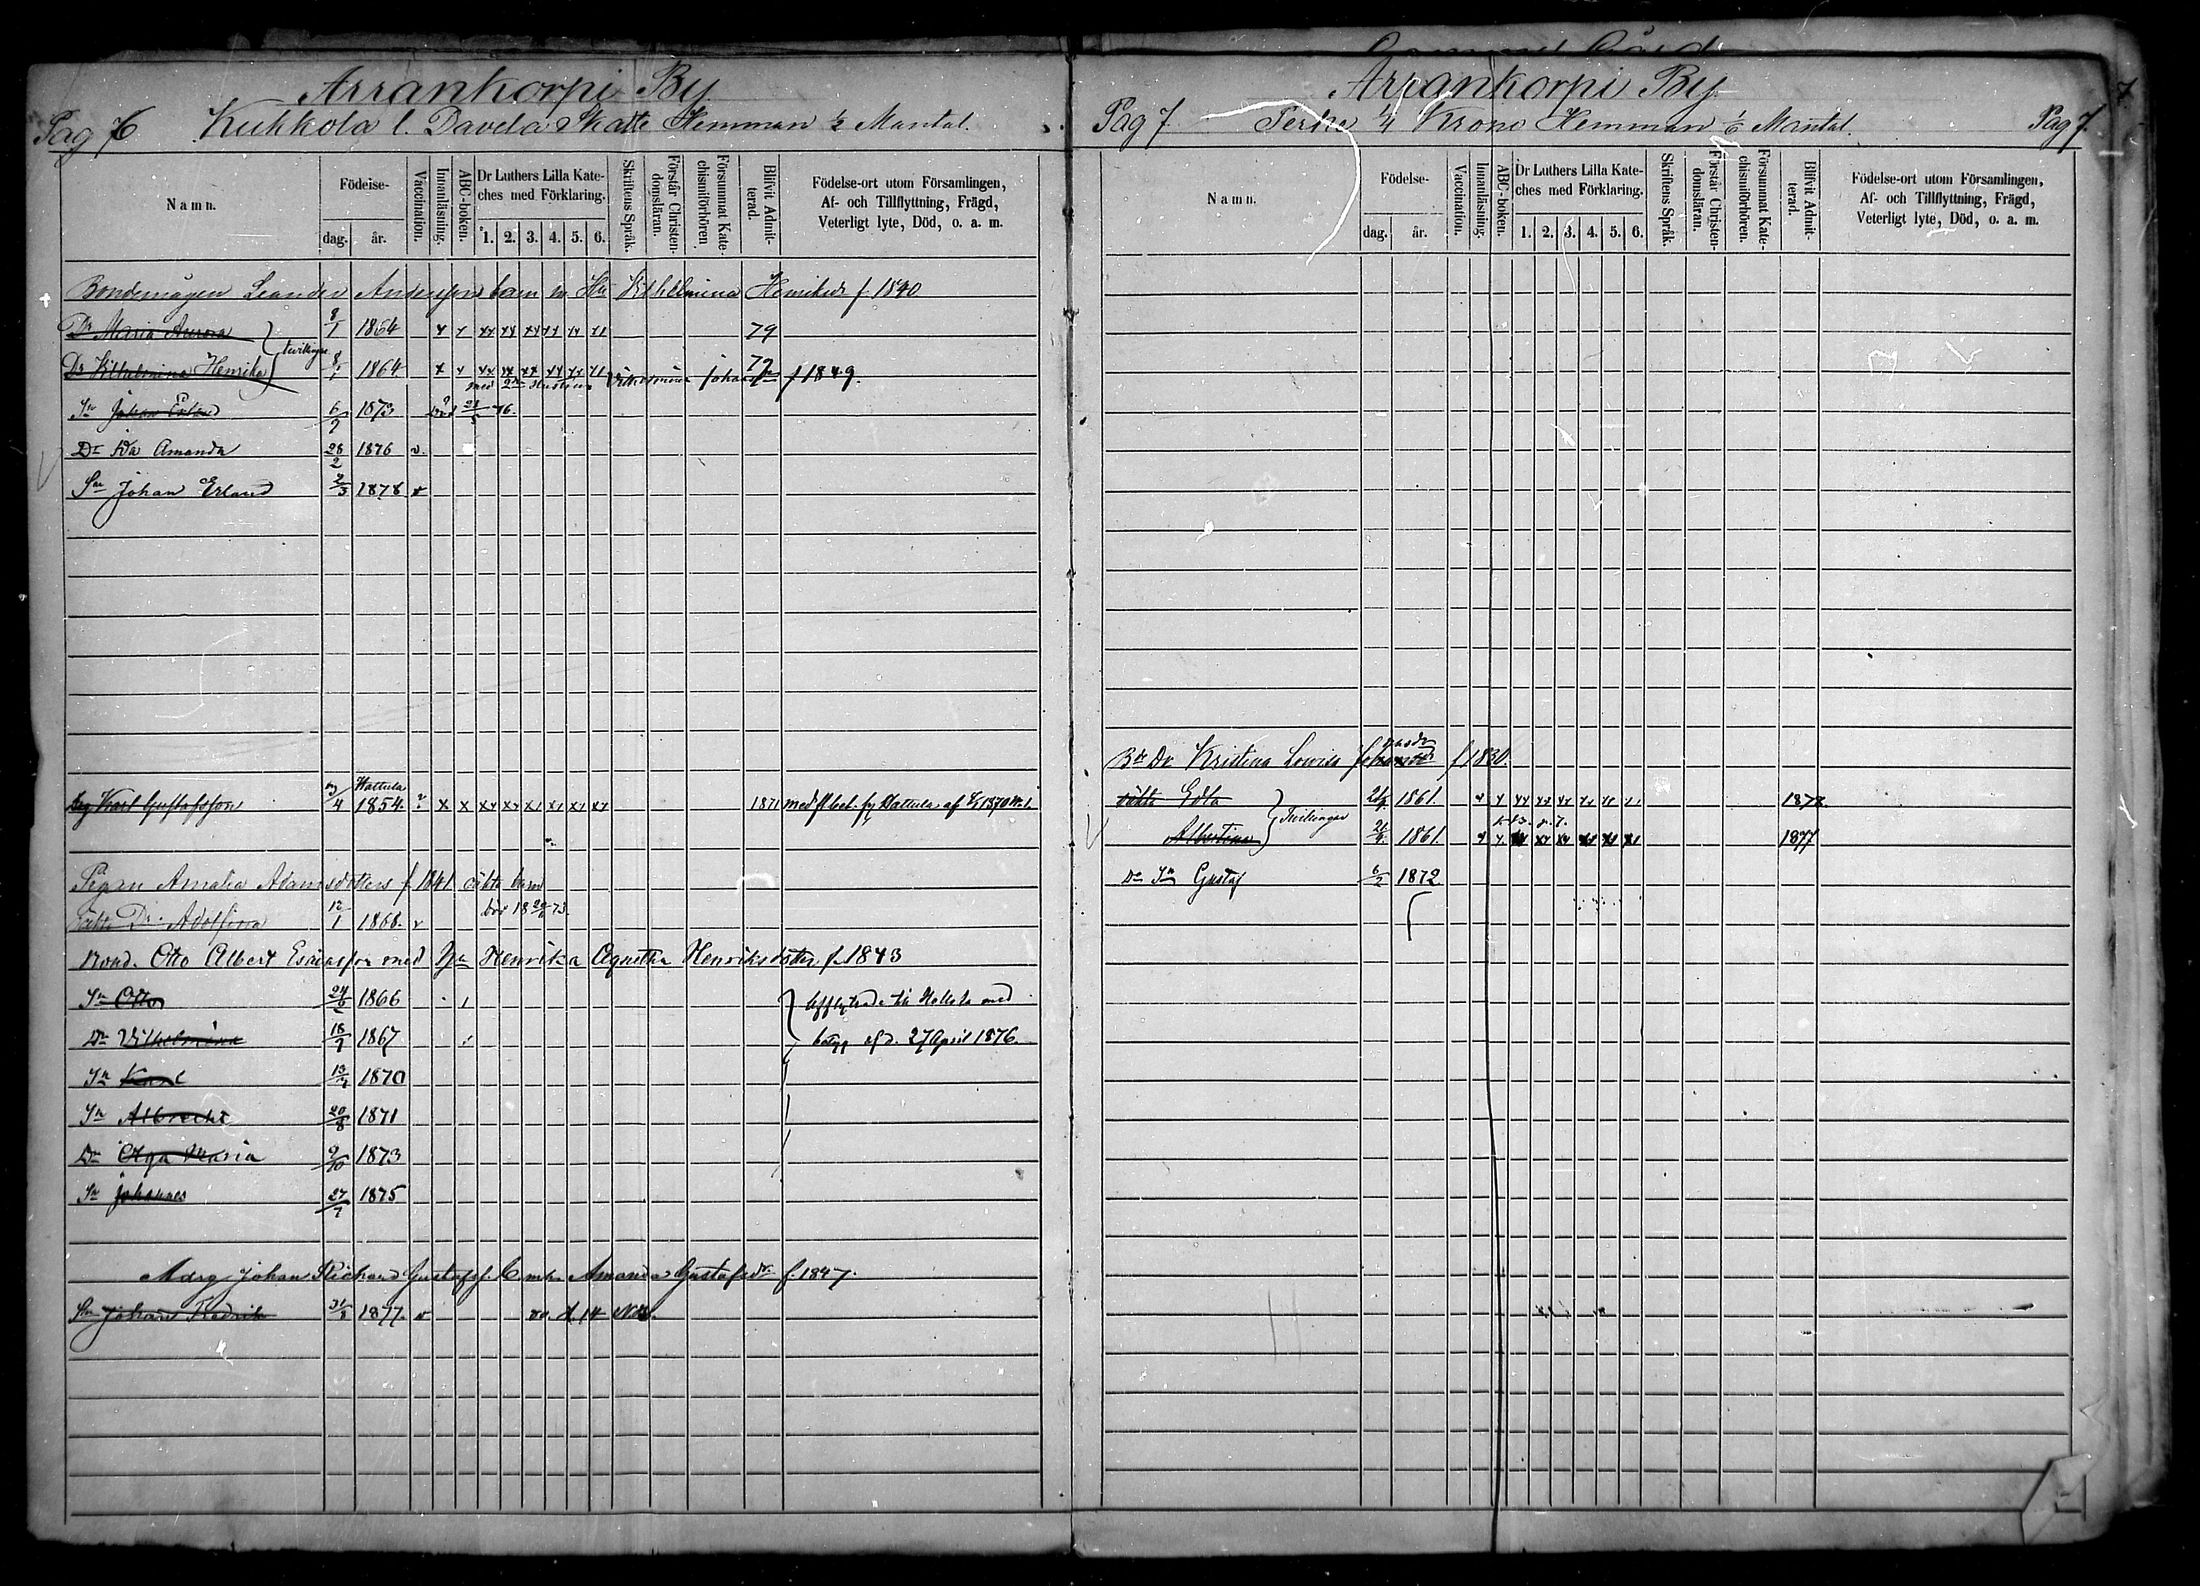 Arrankorpi By
Pag 6 Kuhkola l. Davela Skatte Hemman ½ Mantal.
Namn. Födelse- dag. år. Vaccination. Innanläsning. ABC-boken. Dr Luthers Lilla Kateches med Förklaring. 1. 2. 3. 4. 5. 6. Skriftens Språk. Förstår Christendomsläran. Försummat Katechismiförhören Blifvit Admitterad. Födelse-ort utom Församlingen, Af- och Tillflyttning, Frägd, Veterligt lyte, Död, o. a. m.
Bondemågen Leander Andersson barn m. Hu Vilhelmina Henriksdr f. 1840
Dr Maria Aurora 8/1 1864 x x xx xx xx xx xx xx 79
Tvillingar
Dr Vilhelmina Henrika 8/1 1864 x x xx xx xx xx xx 79
med 2n Hustrun Vilhelmina Johansdr f 1849.
Sn Johan Erland 6/7 1873 död 28/5 76.
Dr Ida Amanda 28/2 1876 v.
Sn Johan Erland 2/3 1878 v
Hattula
Drg Karl Gustafsson 1854 ? x x xx xx xx xx xx xx 1871 med fl. bet. fr Hattula af 1870 N. 1.
Pigan Amalia Adamsdotters f. 1841 oäkta barn
Oäkta Dr. Adolfina 12/1 1868. v död 18 73.
Bond. Otto Albert Esaiasson med Hu Henrika Agnetha Henriksdotter f. 1843
Sn Otto 24/6 1866 Afflyttade till Hollola med
Dr Vilhelmina 18/7 1867 betyg af d. 27 April 1876.
Sn Karl 1870
Sn Albrecht 20/8 1871
Dr Olga Maria 9/10 1873
Sn Johannes 27/7 1875
Måg Johan Richard Gustafss. m. h. Amanda Gustafsdr f. 1847.
Sn Johan Fredrik 31/3 1877. v d. 14 Nov.
Arrankorpi By
Pag 7 Perho 1/4 Krono Hemman 1/6 Mantal. Pag 7.
7
Namn. Födelse- dag. år. Vaccination. Innanläsning. ABC-boken. Dr Luthers Lilla Kateches med Förklaring. 1. 2. 3. 4. 5. 6. Skriftens Språk. Förstår Christendomsläran. Försummat Katechismiförhören. Blifvit Admitterad. Födelse-ort utom Församlingen, Af- och Tillflyttning, Frägd, Veterligt lyte, Död, o. a. m.
Bde Dr Kristina Lovisa f 1830.
oäkta Edla 1861. x x xx xx xx xx 1878
Tvillingar
Albertina 1861. x x xx xx xx xx xx 1877
Dr Sn Gustaf 6/2 1872